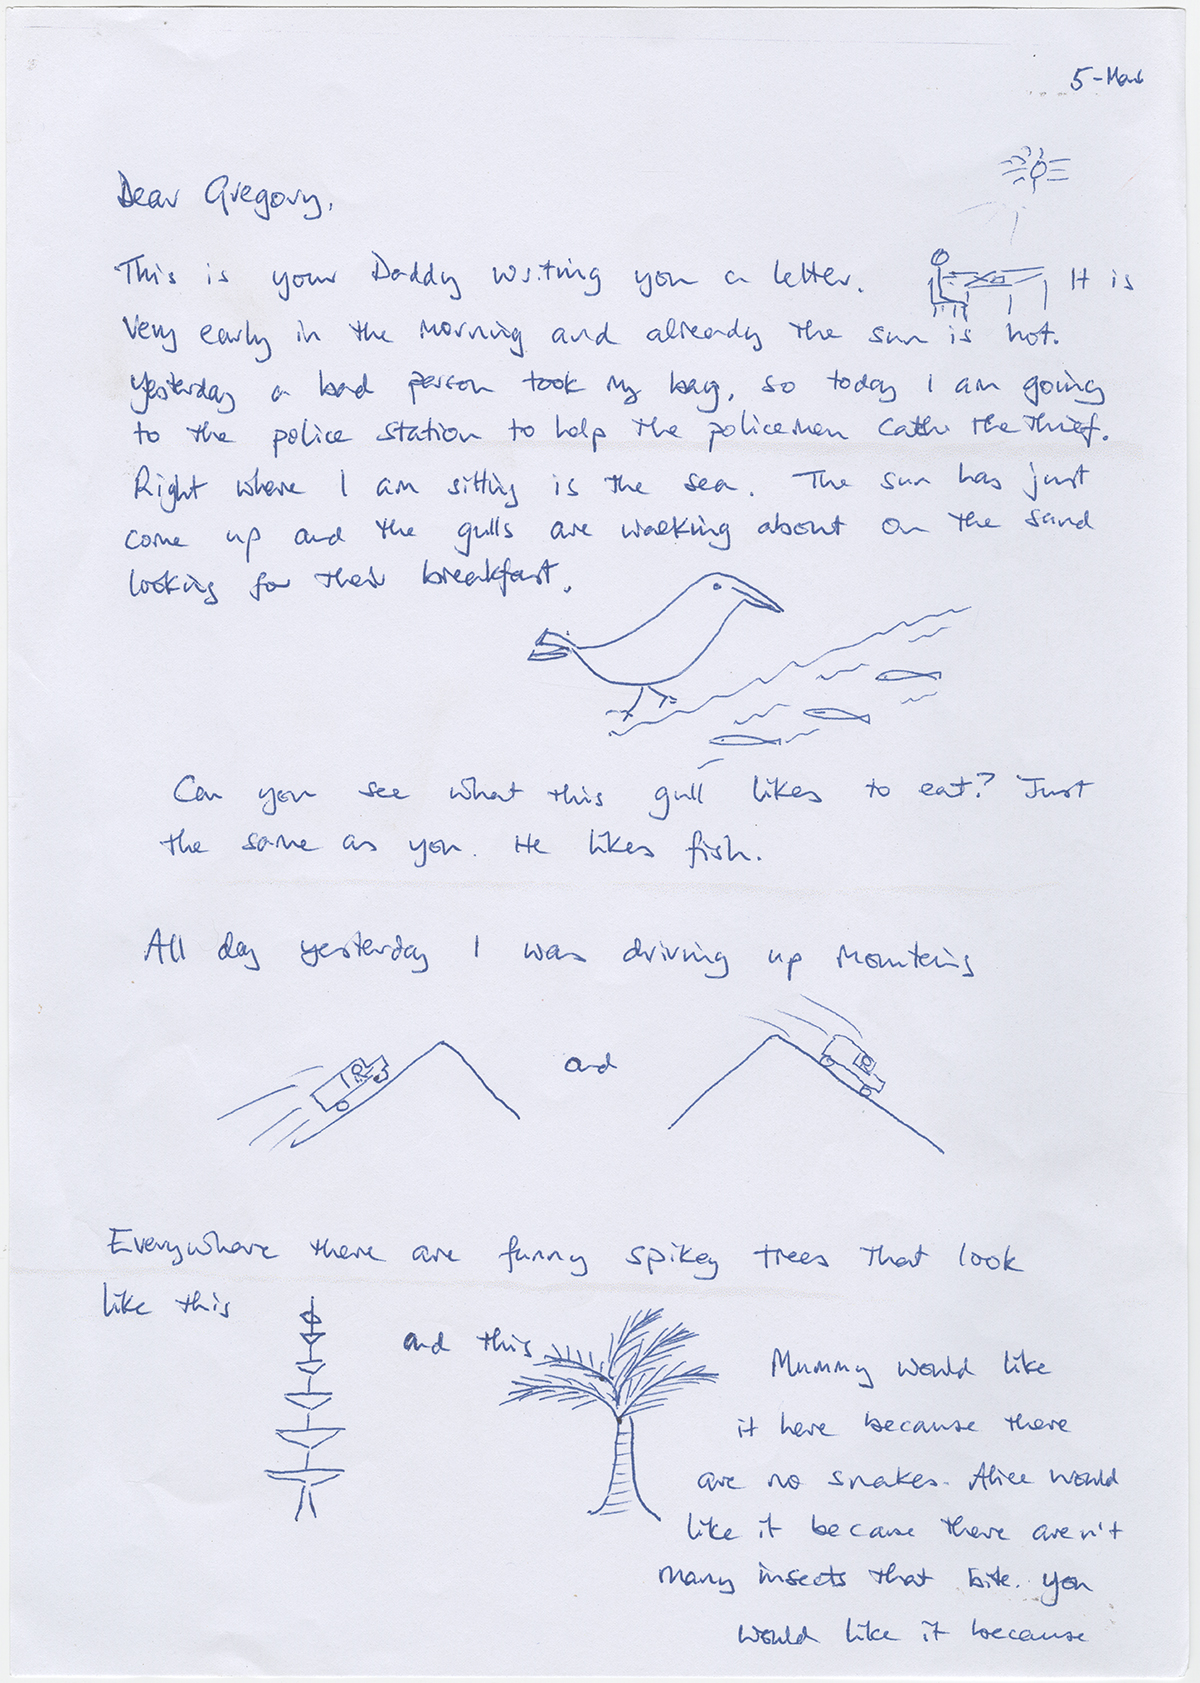 5-Mar
Dear Gregory,
This is your Daddy writing you a letter. It is
very early in the morning and already the sun is hot.
Yesterday a bad person took my bag, so today I am going
to the police station to help the policemen catch the thief.
Right where I am sitting is the sea. The sun has just
come up and the gulls are walking about on the sand
looking for their breakfast.
Can you see what this gull likes to eat? Just
the same as you. He likes fish.
All day yesterday I was driving up mountains
and
Everywhere there are funny spikey trees that look
like this
and this
Mummy would like
it here because there
are no snakes. Alice would
like it because there aren't
many insects that bite. You
would like it because